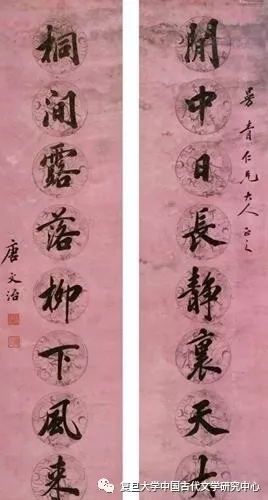 曼青仁兄大人正之
閒中日長靜裏天大
桐間露落柳下風來
唐文治
复旦大学中国古代文学研究中心